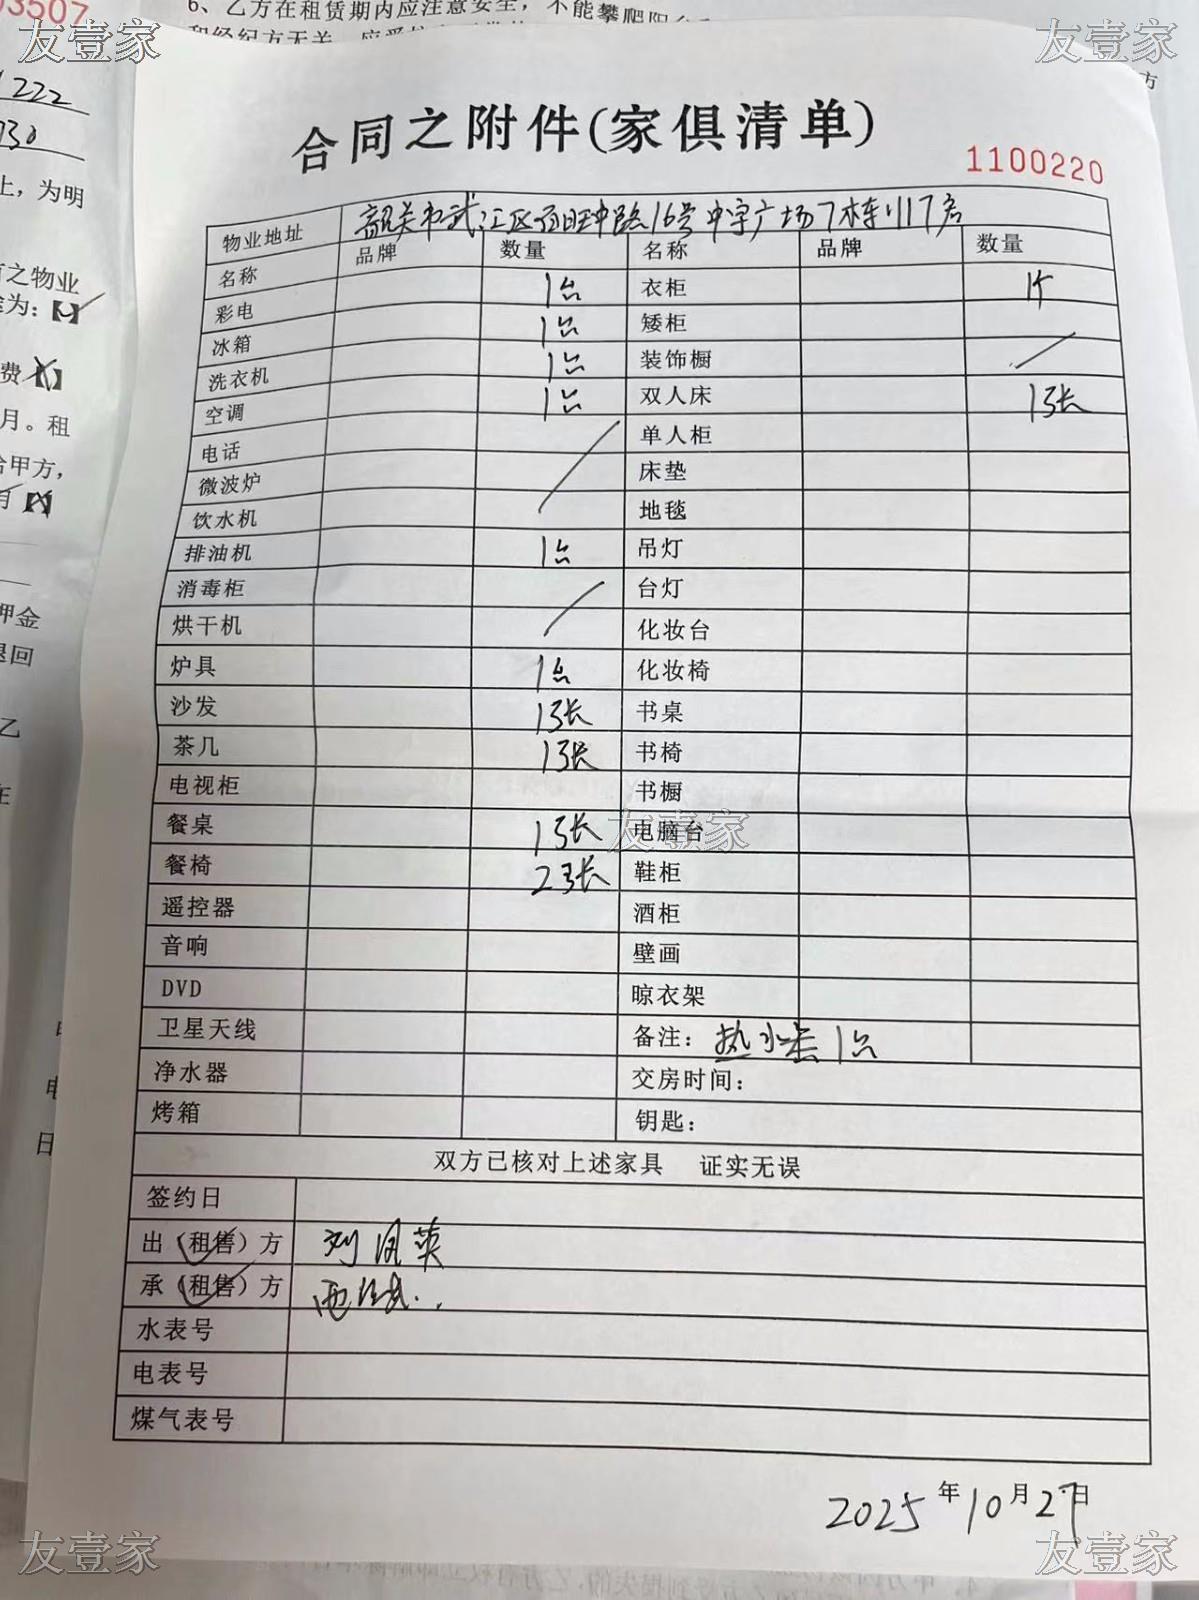 03507
6、乙方在租赁期内应注意安全，不能攀爬阳台
和经纪方无关
友壹家
友壹家
222
方
930
上，为明
有之物业
为:【】
费【】
月。租
给甲方，
月【】
押金
退回
乙
在
日
合同之附件(家俱清单)
1100220
物业地址 韶关市武江区 中路16号 广场7栋1117房
名称 品牌 数量 名称 品牌 数量
彩电 1台 衣柜 1个
冰箱 1台 矮柜
洗衣机 1台 装饰橱
空调 1台 双人床 1张
电话 单人柜
微波炉 床垫
饮水机 地毯
排油机 1台 吊灯
消毒柜 台灯
烘干机 化妆台
炉具 1台 化妆椅
沙发 1张 书桌
茶几 1张 书椅
电视柜 书橱
餐桌 1张 电脑台
友壹家
餐椅 2张 鞋柜
遥控器 酒柜
音响 壁画
DVD 晾衣架
卫星天线 备注: 热水器1台
净水器 交房时间:
烤箱 钥匙:
双方已核对上述家具 证实无误
签约日
出（租售）方 刘凤英
承（租售）方
水表号
电表号
煤气表号
2025年10月27日
友壹家
友壹家